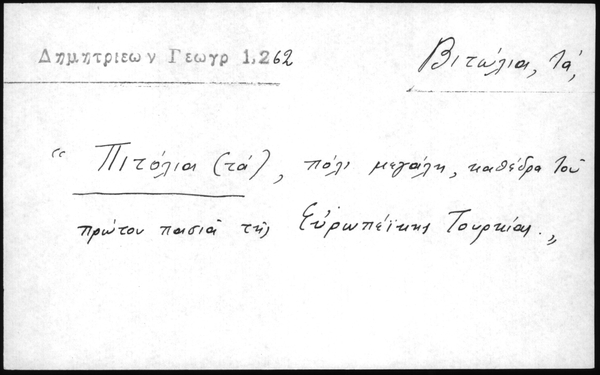 Δημητριεων Γεωγρ 1,262
Βιτώλια, τά,
“ Πιτόλια (τά), πόλι μεγάλη, καθέδρα τοῦ
πρώτου πασιᾶ τῆς Εὐρωπέϊκης Τουρκίας.„